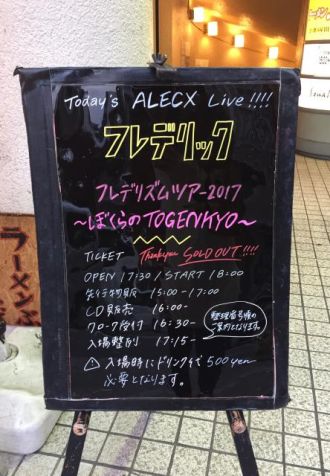 Today's ALECX Live!!!!
フレデリック
フレデリズムツアー2017
〜ぼくらのTOGENKYO〜
TICKET Thankyou SOLD OUT!!!!
OPEN 17:30 / START 18:00
先行物販 15:00-17:00
CD販売 16:00-
クローク受付 16:30-
入場整列 17:15-
整理番号順の
ご案内となります。
⚠ 入場時にドリンク代500yen
必要となります。
ラーメン